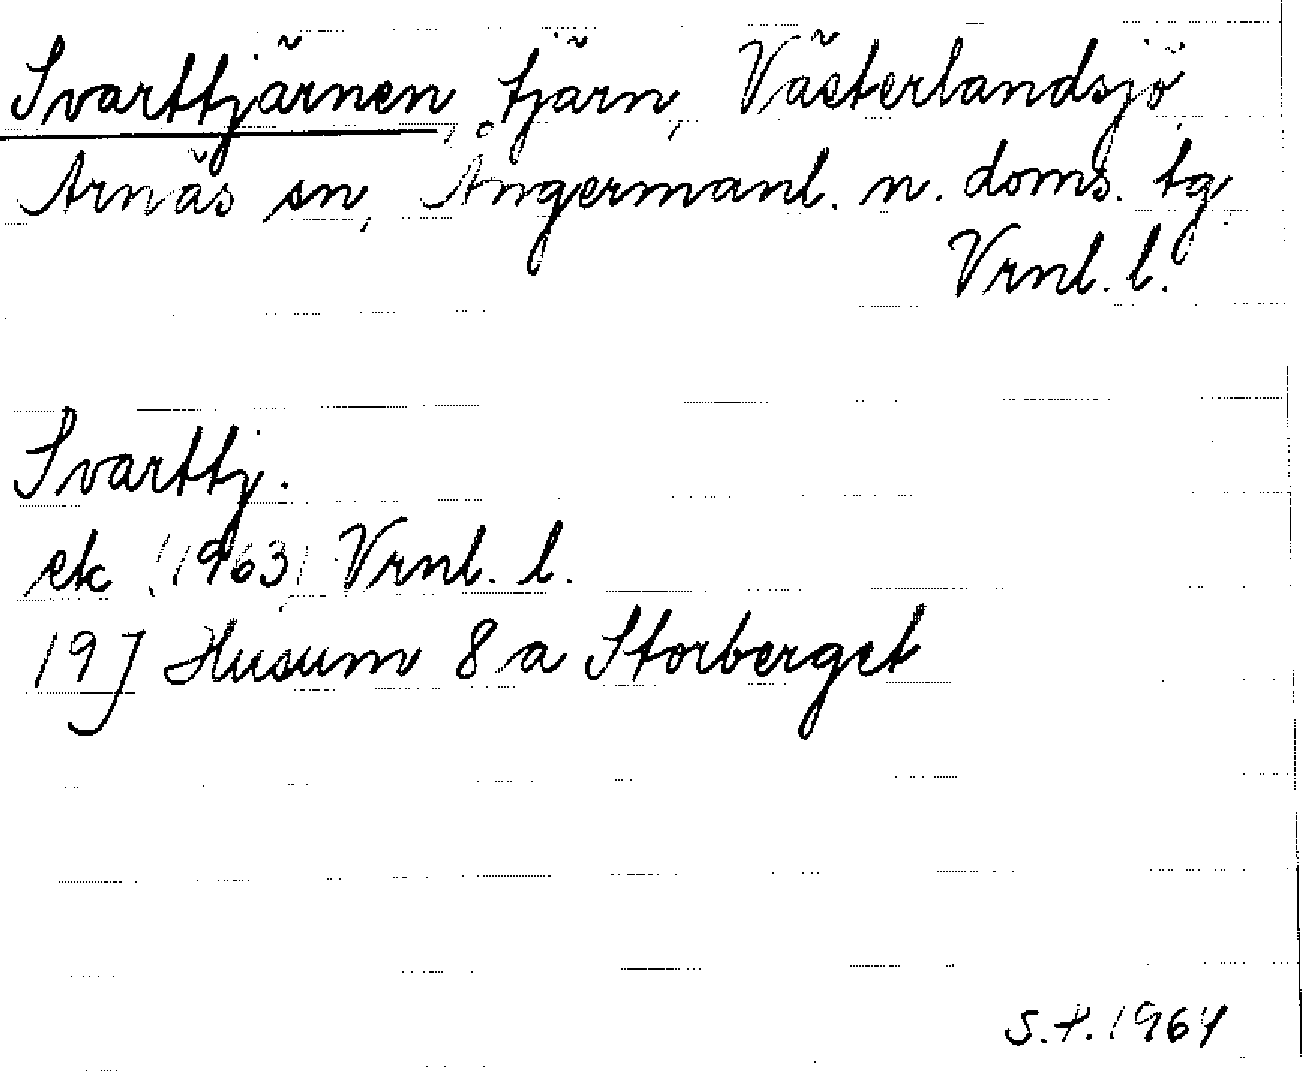 Svarttjärnen, tjärn, Västerlandsjö,
Arnäs sn, Ångermanl. n. doms. tg.
Vrnl. l.
Svarttj.
ek (1963) Vrnl. l.
19J Husum 8 a Storberget
S.H. 1964